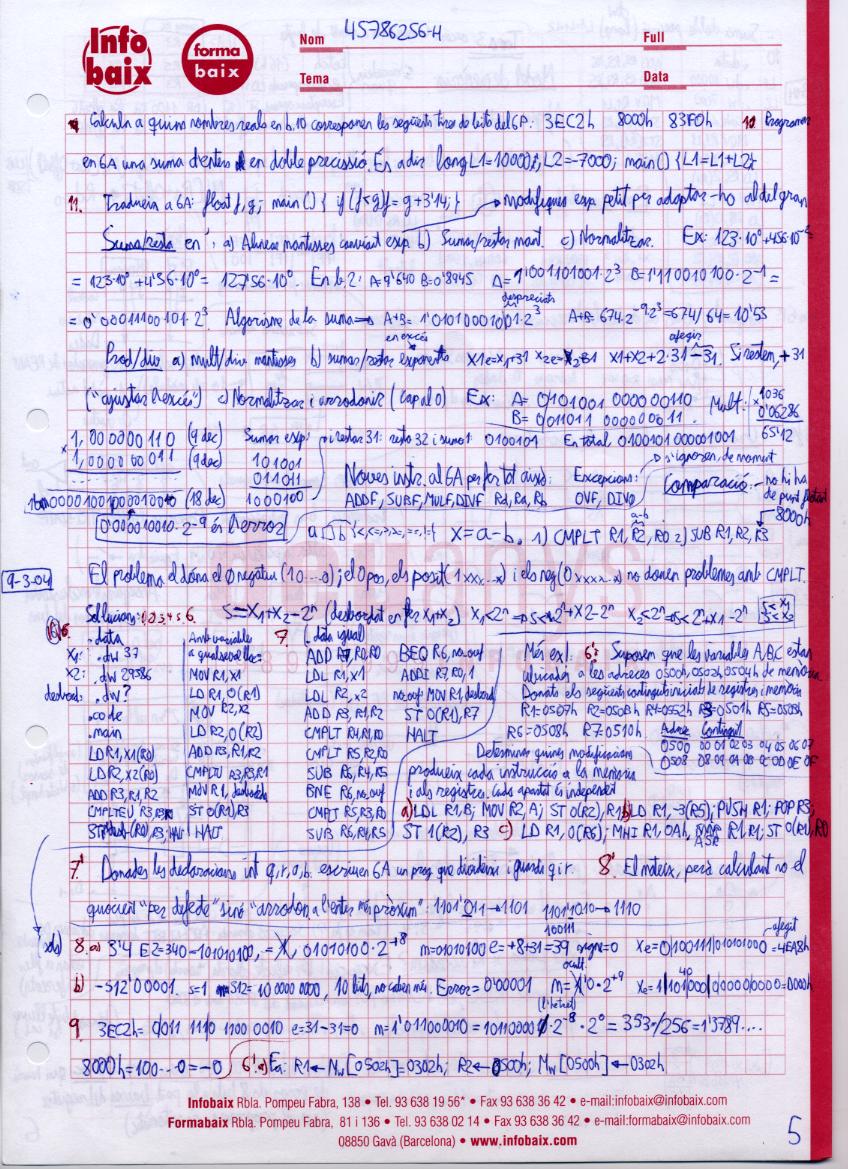 Infò baix
forma baix
Nom 45786256-H
Full
Tema
Data
9. Calcula a quins nombres reals en b.10 corresponen les següents tires de bits del 6P. 3EC2h 8000h 83F0h 10. Programar
en 6A una suma d'enters en doble precissió. És a dir long L1=10000, L2=-7000; main() {L1=L1+L2}
11. Tradueix a 6A: float f,g; main() { if (f<g) f= g+3'14; } modifiques exp. petit per adaptar-ho al del gran
Suma/resta en ', a) Alinear mantisses canviant exp. b) Sumar/restar mant. c) Normalitzar. Ex: 123·10⁰+456·10⁻²
= 123·10⁰ +4'56·10⁰= 127'56·10⁰. En b.2: A=9'640 B=0'8945 A=1'001101001·2³ B=1'110010100·2⁻¹ =
= 0'00011100101·2³. Algorisme de la suma A+B= 1'01010001001·2³ A+B= 674·2⁻⁹·2³=674/64=10'53
despreciats
en excés
afegir
Prod/div a) mult/div mantisses b) sumar/restar exponents X1e=X1+31 X2e=X2+31 X1+X2+2·31-31. Si resten, +31
("ajustar l'excés") c) Normalitzar i arrodonir (cap al 0) Ex: A= 0|101001 000000110 Mult.
B= 0|011011 000000011.
1036
0'06286
65'12
1,000000110 (9 dec)
x 1,000000011 (9 dec)
Sumar exp. i restar 31: resto 32 i sumo 1: 0100101 En total 0100101000001001
101001
011011
1000100
(18 dec)
0'000010010·2⁻⁹ és l'error
Noves instr. al 6A per fer tot això: Excepcions: s'ignoren, de moment
ADDF, SUBF, MULF, DIVF Rd, Ra, Rb OVF, DIV0
Comparació: no hi ha de punt flotant
X=a-b. 1) CMPLT R1, R2, R0 2) SUB R1, R2, R3
a-b
8000h
9-3-04
El problema el dóna el 0 negatiu (10...0); el 0 pos, els posit (1xxx...x) i els neg (0xxxx...x) no donen problemes amb CMPLT.
Solucions: 1, 2, 3, 4, 5, 6. S=X1+X2-2ⁿ (desbordat en fer X1+X2) X1<2ⁿ S<2ⁿ+X2-2ⁿ X2<2ⁿ S<2ⁿ+X1-2ⁿ
S<X1
S<X2
6.
.data
X1: .dw 37
X2: .dw 29586
desbord: .dw ?
.code
.main
LD R1, X1(R0)
LD R2, X2(R0)
ADD R3, R1, R2
Amb variable a qualsevol lloc:
MOV R1, X1
LD R1, 0(R1)
MOV R2, X2
LD R2, 0(R2)
ADD R3, R1, R2
CMPLTU R3, R3, R1
MOV R1, desborda
ST 0(R1), R3
HALT
7. (.data igual)
ADD R7, R0, R0
LDL R1, x1
LDL R2, x2
ADD R3, R1, R2
CMPLT R4, R1, R0
CMPLT R5, R2, R0
SUB R6, R4, R5
BNE R6, no_ouf
CMPLT R5, R3, R0
SUB R6, R4, R5
BEQ R6, no_ouf
ADDI R7, R0, 1
no_ouf MOV R1, desbord
ST 0(R1), R7
HALT
Més ex.: 6': Suposem que les variables A,B,C estan
ubicades a les adreces 0500h, 0502h, 0504h de memòria
Donats els següents continguts inicials de registres i memòria
R1=0507h R2=050Bh R4=0552h R3=0501h R5=0505h
R6=0508h R7=0510h.
Adreça Contingut
0500 00 01 02 03 04 05 06 07
0508 08 09 0A 0B 0C 0D 0E 0F
Determinar quines modificacions
produeix cada instrucció a la memòria
i als registres. Cada apartat és independent
a) LDL R1, B; MOV R2, A; ST 0(R2), R1 b) LD R1, -3(R5); PUSH R1; POP R3;
ST 1(R2), R3 c) LD R1, 0(R6); MHI R1, 0Ah, R1, R1; ST 0(R1), R0
7' Donades les declaracions int q, r, a, b. escriure en 6A un prog. que divideixi i guardi q i r. 8'. El mateix, però calculant no el
quocient "per defecte" sinó "arrodon. a l'enter més pròxim": 1101'011→1101 1101'1010→1110
sols) 8. a) 3'4 E2=340=101010100, = 1, 01010100·2⁺⁸ m=01010100 e=+8+31=39 100111 signe=0 Xe=0|100111|010101000 =4EA8h
afegit
ocult.
b) -512'00001. s=1 512= 1000000000, 10 bits, no caben més. Error=0'00001 m=1'0·2⁺⁹ Xe=1|101000|000000000=D000h
40
(l'he tret)
9. 3EC2h= 0011 1110 1100 0010 e=31-31=0 m=1'011000010=10110000·2⁻⁸·2⁰=353/256=1'3789....
8000h=100...0=-0 6'.a) Ex: R1←Mw[0502h]=0302h; R2←0500h; Mw[0500h]←0302h
Infobaix Rbla. Pompeu Fabra, 138 • Tel. 93 638 19 56* • Fax 93 638 36 42 • e-mail:infobaix@infobaix.com
Formabaix Rbla. Pompeu Fabra, 81 i 136 • Tel. 93 638 02 14 • Fax 93 638 36 42 • e-mail:formabaix@infobaix.com
08850 Gavà (Barcelona) • www.infobaix.com
5